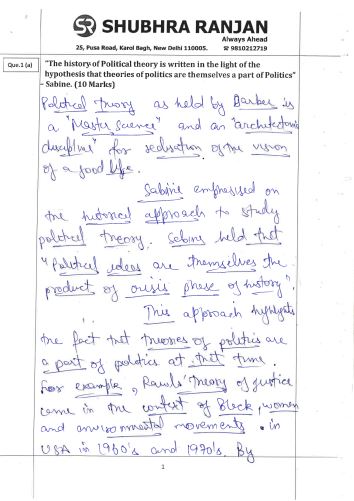 SHUBHRA RANJAN
Always Ahead
25, Pusa Road, Karol Bagh, New Delhi 110005. ☎ 9810212719
Que.1 (a)
"The history of Political theory is written in the light of the
hypothesis that theories of politics are themselves a part of Politics"
- Sabine. (10 Marks)
Political theory as held by Barber is
a "Master Science" and an "architectonic
discipline" for realisation of the vision
of a good life.
Sabine emphasised on
the historical approach to study
political theory. Sabine held that
"Political ideas are themselves the
product of crisis phase of history".
This approach highlights
the fact that theories of politics are
a part of politics at that time.
For example, Rawls' Theory of Justice
came in the context of Black, women
and environmental movements in
USA in 1960's and 1990's. By
1